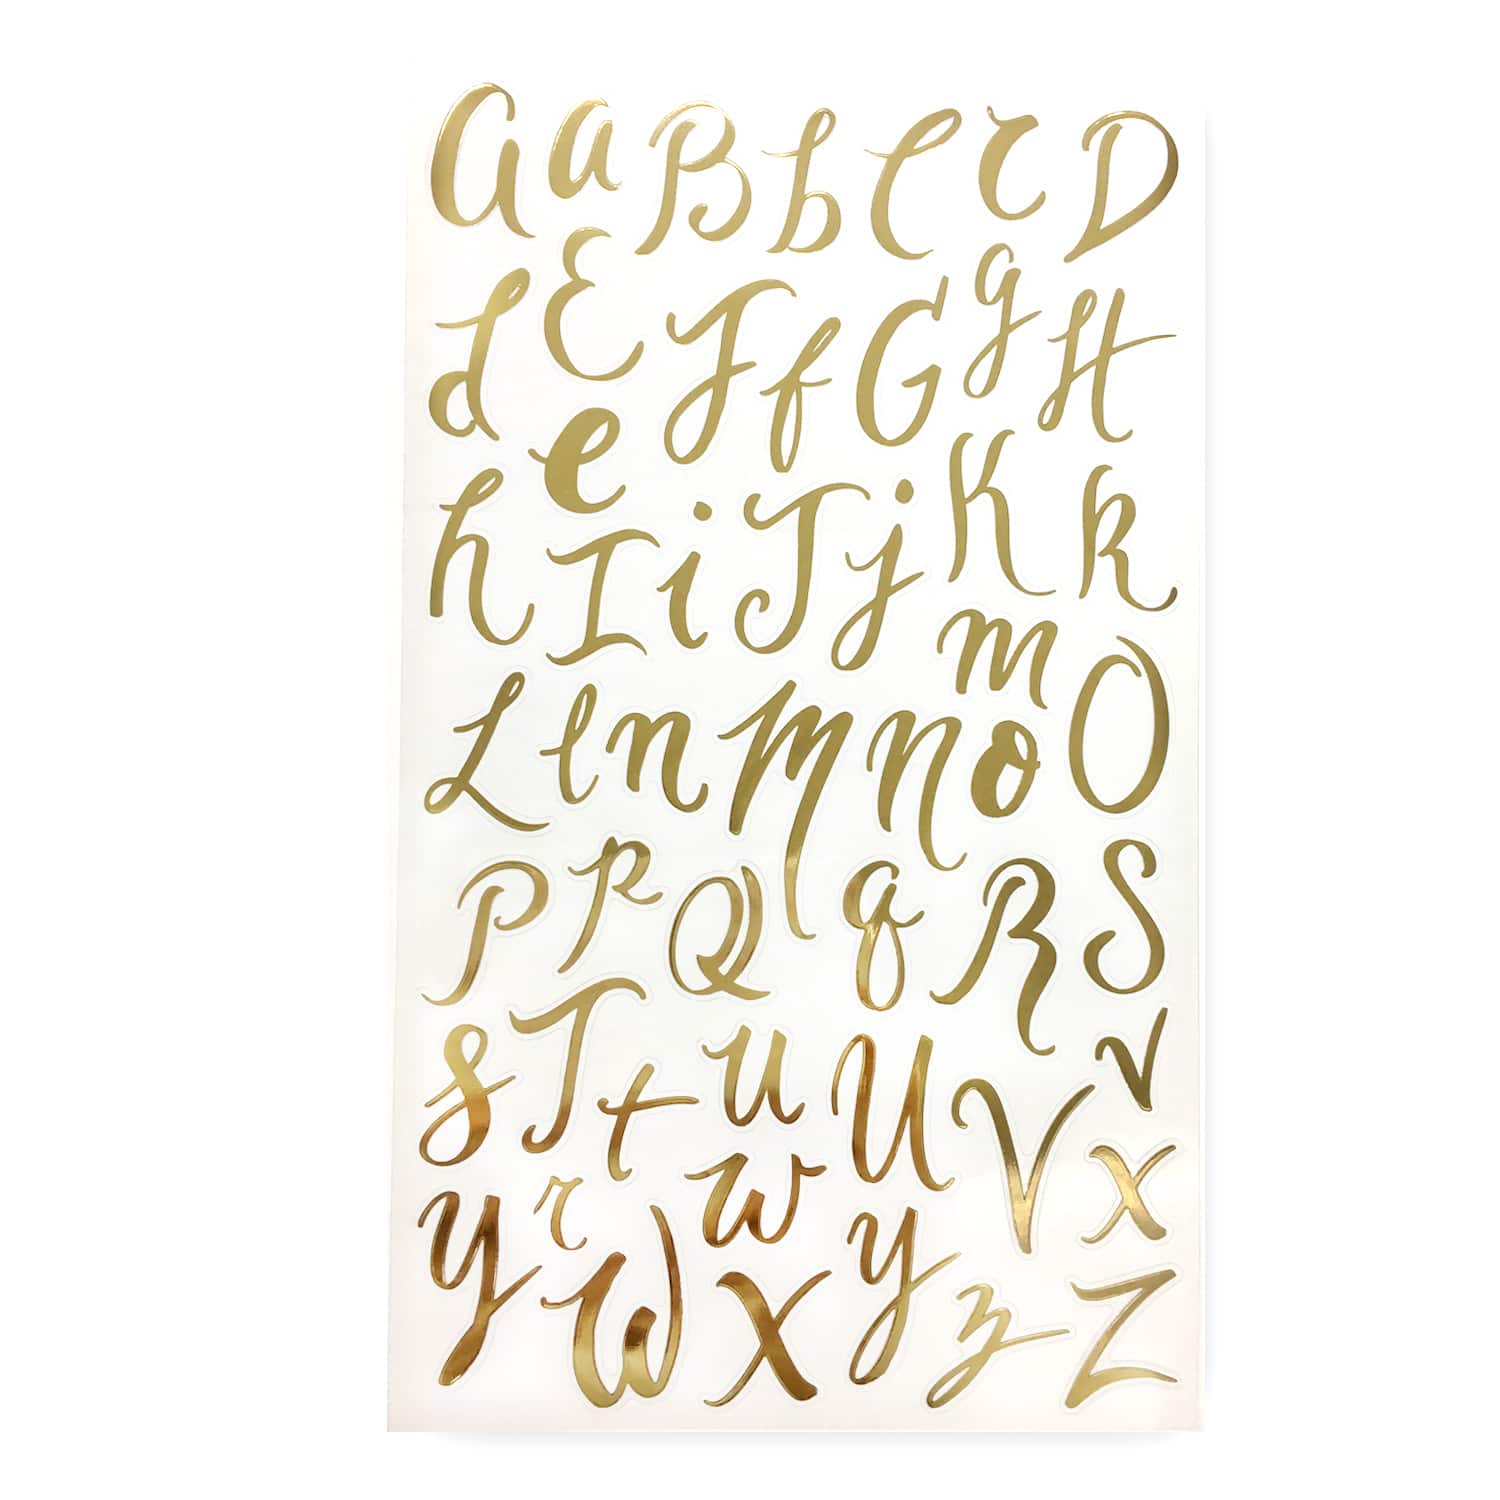 G a B b C c D
d E F f G g H
h e I i J j K k
L l n M n m o O
P p Q q R S
s T t u U V v
y r W w X y z Z x